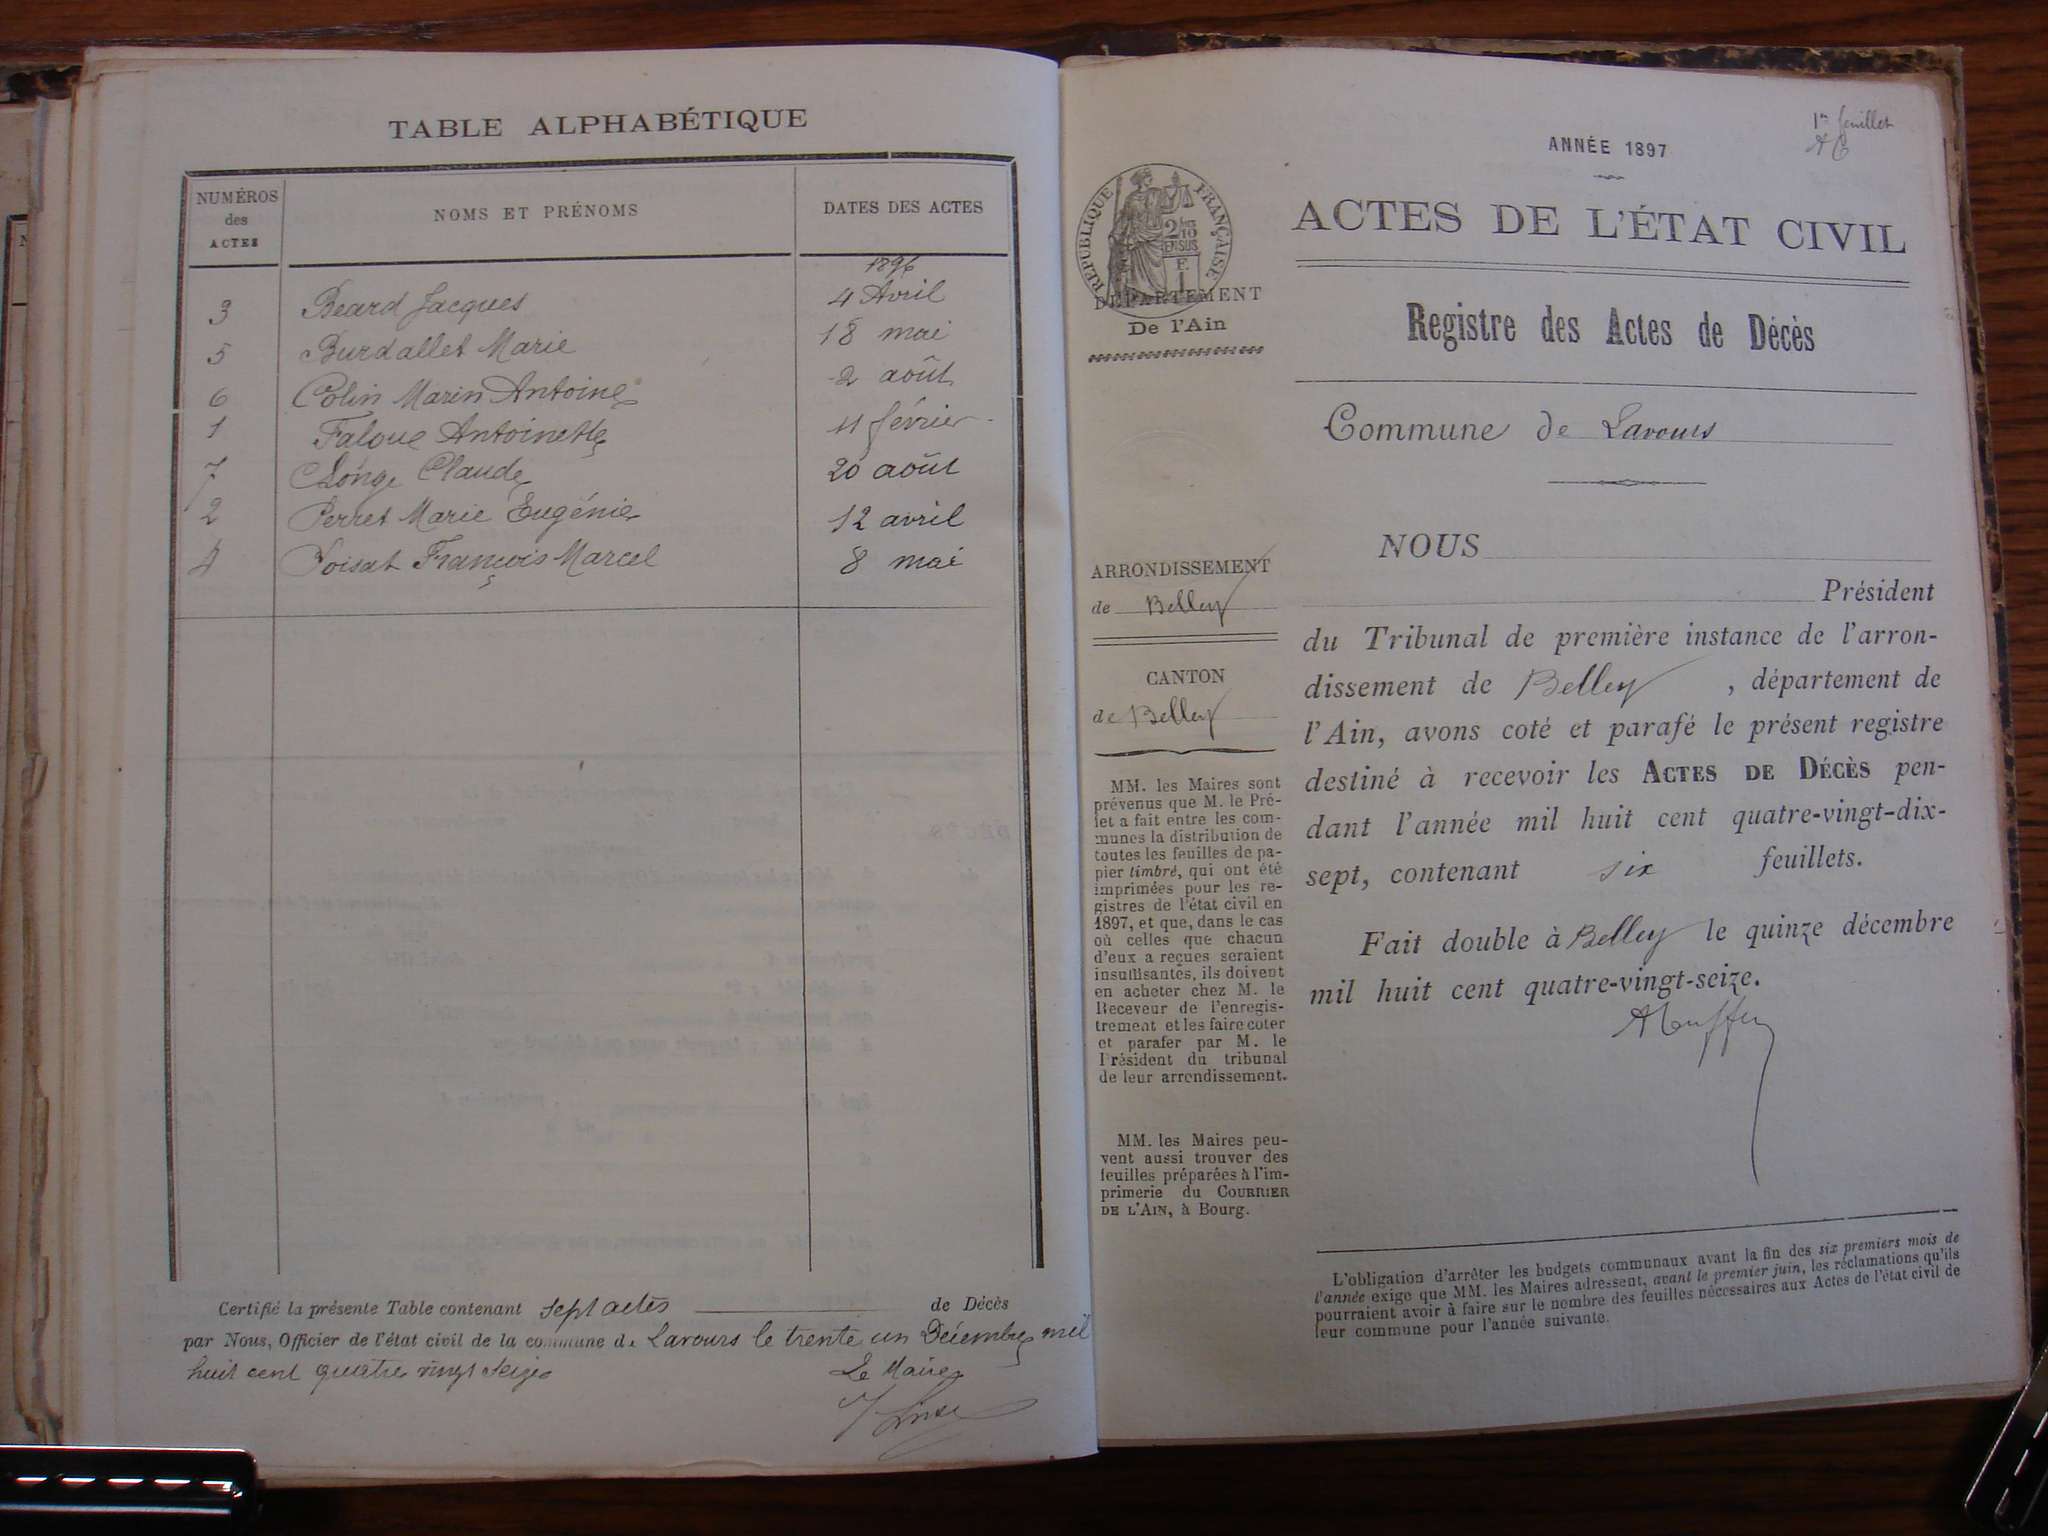 TABLE ALPHABÉTIQUE
NUMÉROS des ACTES
NOMS ET PRÉNOMS
DATES DES ACTES
1896
3 Béard Jacques 4 Avril
5 Burdallet Marie 18 mai
6 Colin Marin Antoine 2 août
1 Faloue Antoinette 11 février
7 Longe Claude 20 août
2 Perret Marie Eugénie 12 avril
4 François Marcel 8 mai
Certifié la présente Table contenant sept actes de Décès
par Nous, Officier de l'état civil de la commune de Lavours le trente un Décembre mil
huit cent quatre vingt seize
Le Maire
1er feuillet
ANNÉE 1897
ACTES DE L'ÉTAT CIVIL
RÉPUBLIQUE FRANÇAISE
2/10 EN SUS
DÉPARTEMENT
De l'Ain
Registre des Actes de Décès
Commune de Lavours
ARRONDISSEMENT
de Belley
CANTON
de Belley
MM. les Maires sont
prévenus que M. le Pré-
fet a fait entre les com-
munes la distribution de
toutes les feuilles de pa-
pier timbré, qui ont été
imprimées pour les re-
gistres de l'état civil en
1897, et que, dans le cas
où celles que chacun
d'eux a reçues seraient
insuffisantes, ils doivent
en acheter chez M. le
Receveur de l'enregis-
trement et les faire coter
et parafer par M. le
Président du tribunal
de leur arrondissement.
MM. les Maires peu-
vent aussi trouver des
feuilles préparées à l'im-
primerie du COURRIER
DE L'AIN, à Bourg.
NOUS
Président
du Tribunal de première instance de l'arron-
dissement de Belley, département de
l'Ain, avons coté et parafé le présent registre
destiné à recevoir les ACTES DE DÉCÈS pen-
dant l'année mil huit cent quatre-vingt-dix-
sept, contenant six feuillets.
Fait double à Belley le quinze décembre
mil huit cent quatre-vingt-seize.
L'obligation d'arrêter les budgets communaux avant la fin des six premiers mois de
l'année exige que MM. les Maires adressent, avant le premier juin, les réclamations qu'ils
pourraient avoir à faire sur le nombre des feuilles nécessaires aux Actes de l'état civil de
leur commune pour l'année suivante.